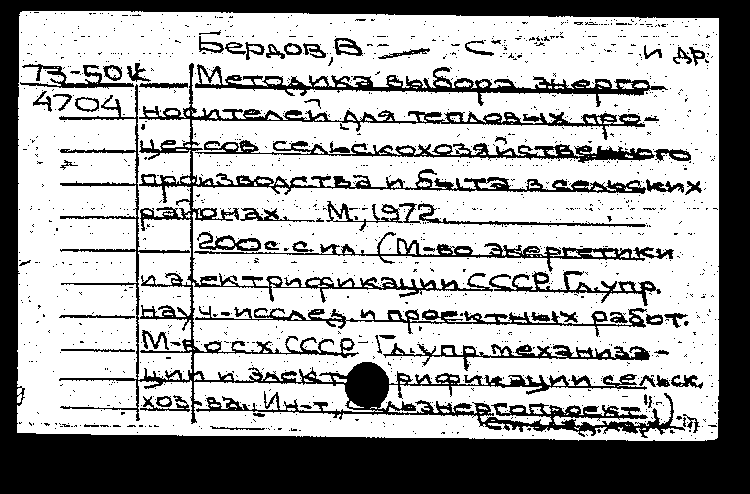 Бердов, В — С и др.
73-50к Методика выбора энерго-
4704 носителей для тепловых про-
цессов сельскохозяйственного
производства и быта в сельских
районах. М., 1972.
200с. с ил. (М-во энергетики
и электрификации СССР. Гл. упр.
науч.-исслед. и проектных работ.
М-во с.х. СССР Гл. упр. механиза-
ции и электрификации сельск.
хоз-ва. Ин-т "Сельэнергопроект").